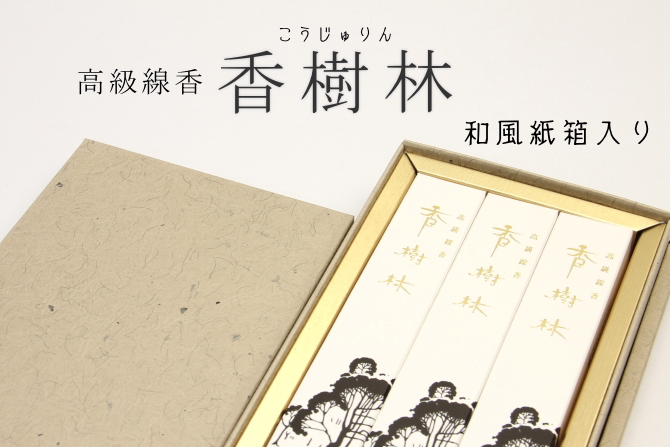 こうじゅりん
高級線香 香樹林
和風紙箱入り
高級線香
香樹林
高級線香
香樹林
高級線香
香樹林